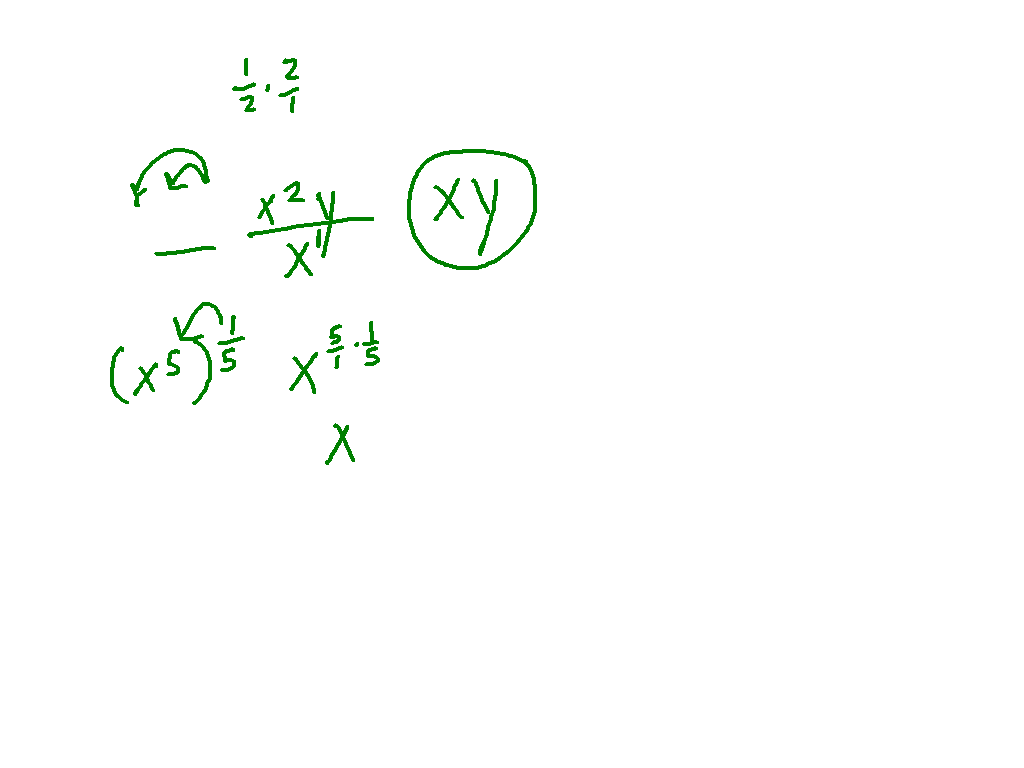 1/2 · 2/1
x²y / x¹ xy
(x⁵)^(1/5) x^(5/1 · 1/5)
x